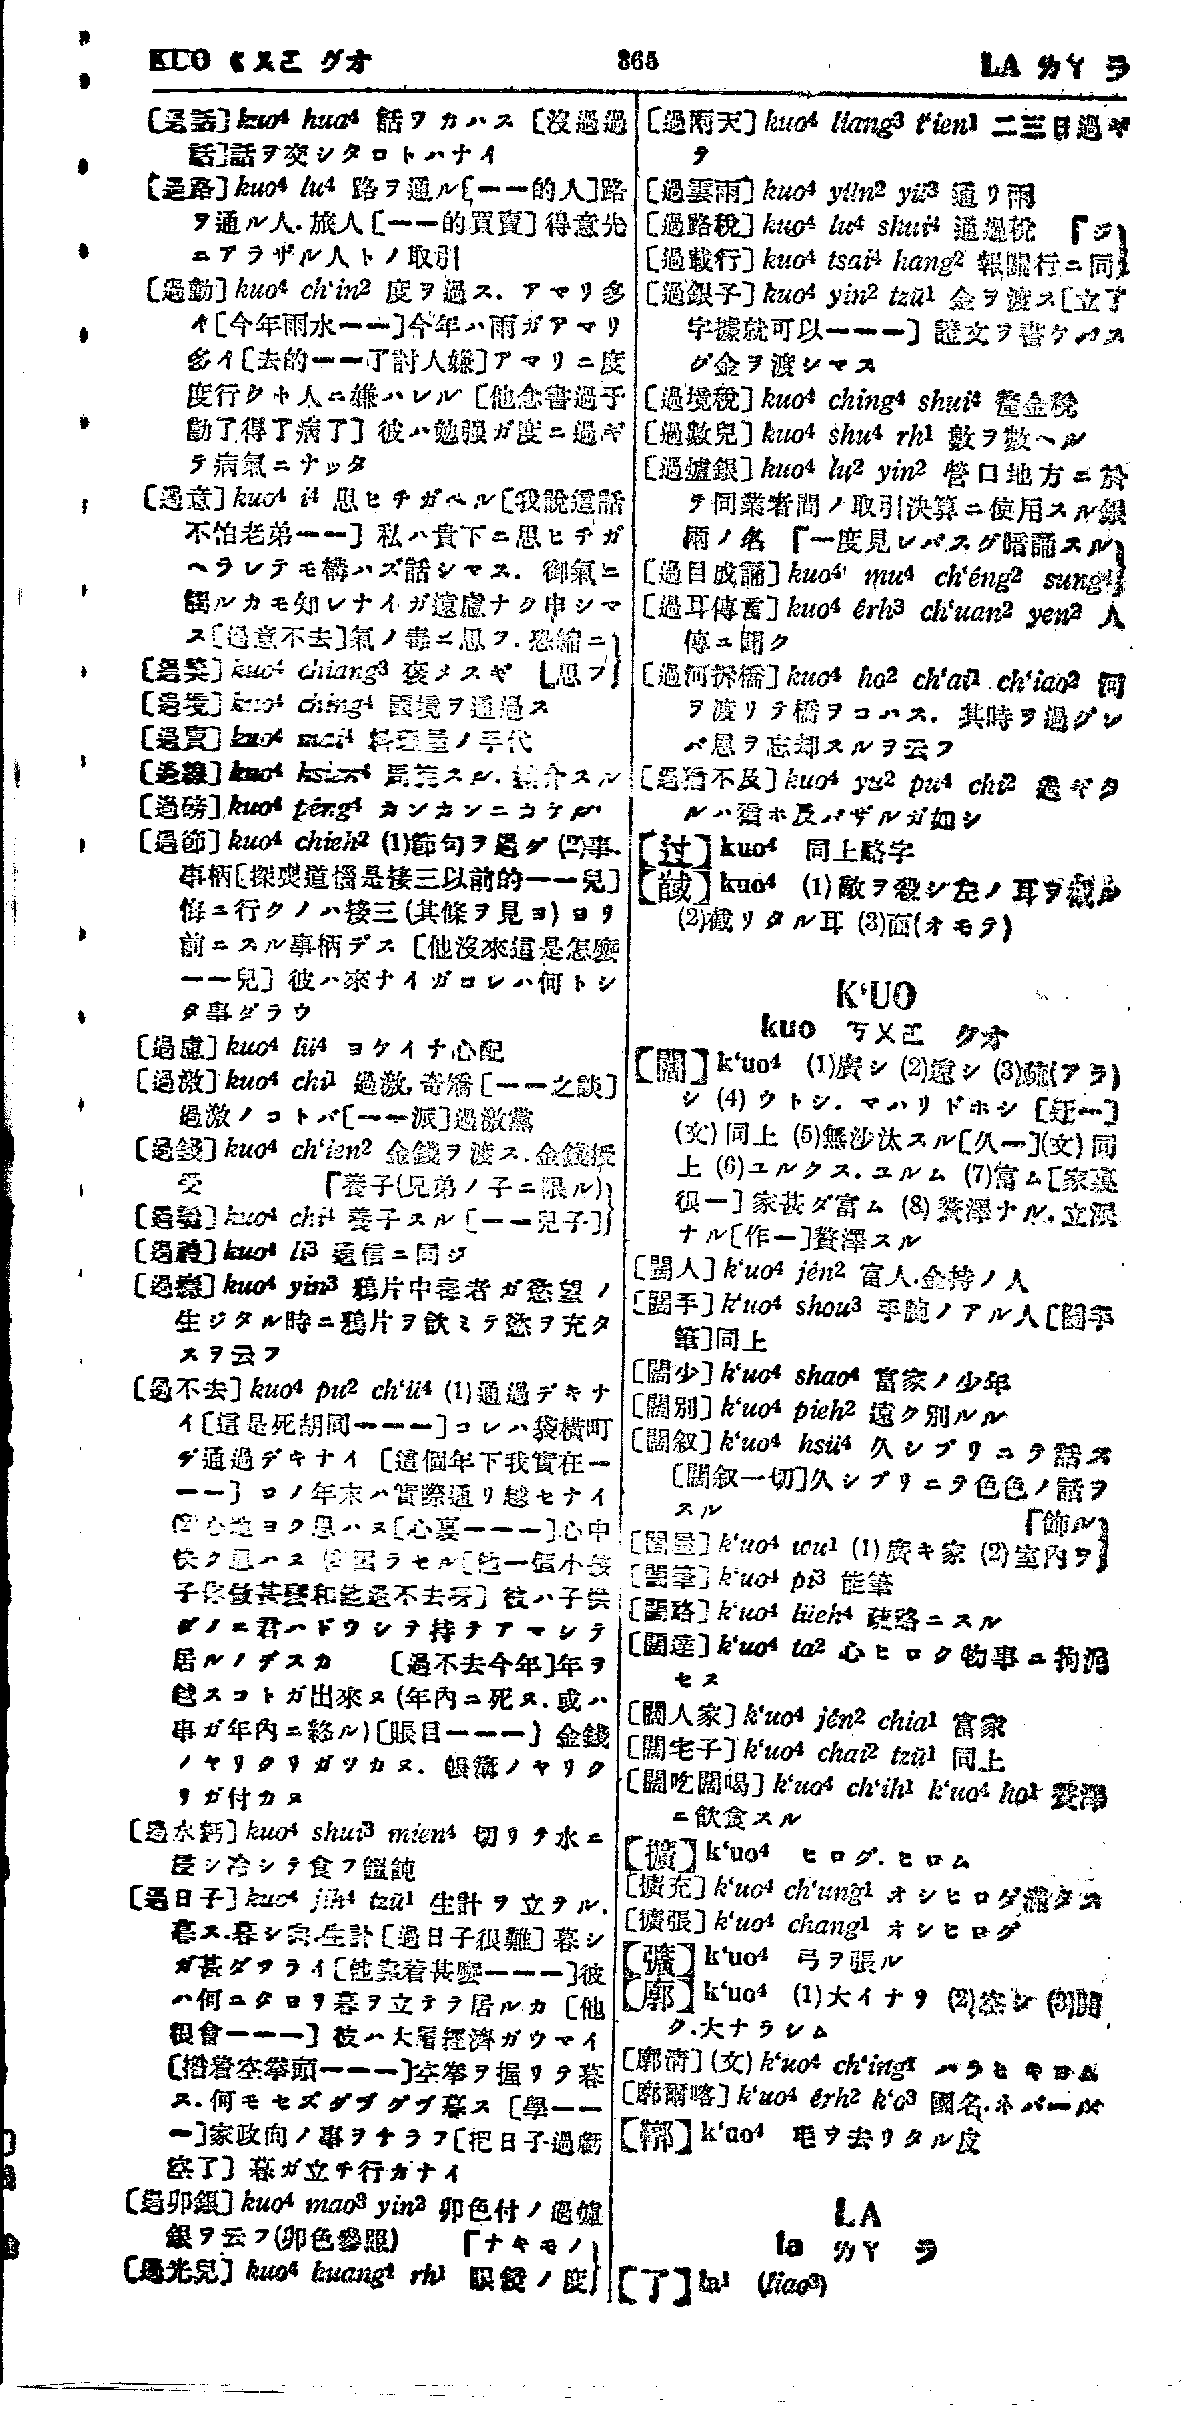 KUO ㄍㄨㄛ グオ
365
LA ㄌㄚ ラ
[過話] kuo⁴ hua⁴ 話ヲカハス [沒過過
話]話ヲ交シタコトハナイ
[過路] kuo⁴ lu⁴ 路ヲ通ル[一一的人]路
ヲ通ル人.旅人[一一的買賣]得意先
ニアラザル人トノ取引
[過勤] kuo⁴ ch'in² 度ヲ過ス.アマリ多
イ[今年雨水一一]今年ハ雨ガアマリ
多イ[去的一一了討人嫌]アマリニ度
度行クト人ニ嫌ハレル [他念書過于
勤了得了病了] 彼ハ勉强ガ度ニ過ギ
テ病氣ニナッタ
[過意] kuo⁴ i⁴ 思ヒチガヘル[我說這話
不怕老弟一一] 私ハ貴下ニ思ヒチガ
ヘラレテモ構ハズ話シマス. 御氣ニ
觸ルカモ知レナイガ遠慮ナク申シマ
ス[過意不去]氣ノ毒ニ思フ.恐縮ニ
[過奖] kuo⁴ chiang³ 褒メスギ [思フ
[過境] kuo⁴ ching⁴ 國境ヲ通過ス
[過賣] kuo⁴ mai⁴ 料理屋ノ手代
[過綫] kuo⁴ hsien⁴
[過磅] kuo⁴ péng⁴ カンカンニカケル
[過節] kuo⁴ chieh² (1)節句ヲ過グ (2)事.
事柄[探喪道惱是接三以前的一一兒]
悔ニ行クノハ接三(其條ヲ見ヨ)ヨリ
前ニスル事柄デス [他沒來這是怎麼
一一兒] 彼ハ來ナイガコレハ何トシ
タ事ダラウ
[過慮] kuo⁴ lü⁴ ヨケイナ心配
[過激] kuo⁴ chi¹ 過激,奇矯[一一之談]
過激ノコトバ[一一派]過激黨
[過錢] kuo⁴ ch'ien² 金錢ヲ渡ス.金錢授
受 「養子(兄弟ノ子ニ限ル)
[過繼] kuo⁴ chi⁴ 養子スル[一一兒子]
[過禮] kuo⁴ li³ 通信ニ同ジ
[過癮] kuo⁴ yin³ 鴉片中毒者ガ慾望ノ
生ジタル時ニ鴉片ヲ飮ミテ慾ヲ充タ
スヲ云フ
[過不去] kuo⁴ pu² ch'ü⁴ (1)通過デキナ
イ[這是死胡同一一一]コレハ袋横町
デ通過デキナイ [這個年下我實在一
一一] コノ年末ハ實際通リ越セナイ
(2)心地ヨク思ハヌ[心裏一一一]心中
快ク思ハヌ (3)困ラセル[他一個小孩
子你做甚麼和他過不去呀] 彼ハ子供
ダノニ君ハドウシテ持テアマシテ
居ルノデスカ [過不去今年]年ヲ
越スコトガ出來ヌ(年內ニ死ヌ.或ハ
事ガ年內ニ終ル)[賬目一一一] 金錢
ノヤリクリガツカヌ. 帳簿ノヤリク
リガ付カヌ
[過水麪] kuo⁴ shui³ mien⁴ 切リテ水ニ
浸シ冷シテ食フ饂飩
[過日子] kuo⁴ jih⁴ tzŭ¹ 生計ヲ立テル.
暮ス.暮シ向.生計[過日子很難]暮シ
ガ甚ダツライ[他靠着甚麼一一一]彼
ハ何ニタヨヲ暮ヲ立テテ居ルカ [他
很會一一一] 彼ハ大層經濟ガウマイ
[揝着空拳頭一一一]空拳ヲ握リテ暮
ス.何モセズグヅグヅ暮ス [學一一
一]家政向ノ事ヲナラフ[把日子過虧
空了] 暮ガ立チ行カナイ
[過卯銀] kuo⁴ mao³ yin² 卯色付ノ過爐
銀ヲ云フ(卯色參照) 「ナキモノ
[過光兒] kuo⁴ kuang¹ rh¹ 眼鏡ノ度
[過兩天] kuo⁴ liang³ t'ien¹ 二三日過ギ
テ
[過雲雨] kuo⁴ yün² yü³ 通リ雨
[過路稅] kuo⁴ lu⁴ shui⁴ 通過稅 「ジ
[過載行] kuo⁴ tsai⁴ hang² 報關行ニ同
[過銀子] kuo⁴ yin² tzŭ¹ 金ヲ渡ス[立了
字據就可以一一一] 證文ヲ書ケバス
グ金ヲ渡シマス
[過境稅] kuo⁴ ching⁴ shui⁴ 釐金稅
[過數兒] kuo⁴ shu⁴ rh¹ 數ヲ數ヘル
[過爐銀] kuo⁴ lu² yin² 營口地方ニ於
テ同業者間ノ取引決算ニ使用スル銀
兩ノ名 「一度見レバスグ暗誦スル
[過目成誦] kuo⁴ mu⁴ ch'éng² sung⁴
[過耳傳言] kuo⁴ êrh³ ch'uan² yen² 人
傳ニ聞ク
[過河拆橋] kuo⁴ ho² ch'ai¹ ch'iao² 河
ヲ渡リテ橋ヲコハス. 其時ヲ過グレ
バ恩ヲ忘却スルヲ云フ
[過猶不及] kuo⁴ yu² pu⁴ chi² 過ギタ
ルハ猶ホ及バザルガ如シ
[过] kuo⁴ 同上略字
[馘] kuo⁴ (1)敵ヲ殺シ左ノ耳ヲ截ル
(2)截リタル耳 (3)面(オモテ)
K'UO
kuo ㄎㄨㄛ クオ
[闊] k'uo⁴ (1)廣シ (2)遠シ (3)疏(アラ)
シ (4) ウトシ. マハリドホシ [迂一]
(文) 同上 (5)無沙汰スル[久一](文) 同
上 (6)ユルクス.ユルム (7)富ム[家裏
很一] 家甚ダ富ム (8) 贅澤ナル.立派
ナル[作一]贅澤スル
[闊人] k'uo⁴ jén² 富人.金持ノ人
[闊手] k'uo⁴ shou³ 手腕ノアル人[闊手
筆]同上
[闊少] k'uo⁴ shao⁴ 富家ノ少年
[闊別] k'uo⁴ pieh² 遠ク別ルル
[闊叙] k'uo⁴ hsü⁴ 久シブリニテ話ス
[闊叙一切]久シブリニテ色色ノ話ヲ
スル 「飾ル
[闊屋] k'uo⁴ wu¹ (1)廣キ家 (2)室內ヲ
[闊筆] k'uo⁴ pi³ 能筆
[闊略] k'uo⁴ lüeh⁴ 疏略ニスル
[闊達] k'uo⁴ ta² 心ヒロク物事ニ拘泥
セヌ
[闊人家] k'uo⁴ jén² chia¹ 富家
[闊宅子] k'uo⁴ chai² tzŭ¹ 同上
[闊吃闊喝] k'uo⁴ ch'ih¹ k'uo⁴ ho¹ 贅澤
ニ飮食スル
[擴] k'uo⁴ ヒログ.ヒロム
[擴充] k'uo⁴ ch'ung¹ オシヒロゲ滿タス
[擴張] k'uo⁴ chang¹ オシヒログ
[彍] k'uo⁴ 弓ヲ張ル
[廓] k'uo⁴ (1)大イナリ (2)空シ (3)開
ク.大ナラシム
[廓淸] (文) k'uo⁴ ch'ing¹ ハラヒキヨム
[廓爾喀] k'uo⁴ êrh² k'o³ 國名.ネパール
[鞹] k'uo⁴ 毛ヲ去リタル皮
LA
la ㄌㄚ ラ
[了] la¹ (liao³)